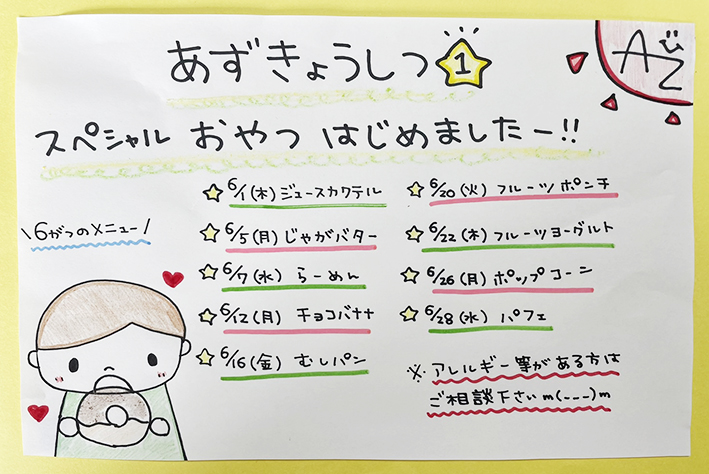 あずきょうしつ 1
AZ
スペシャル おやつ はじめましたー!!
\6がつのメニュー/
☆ 6/1(木)ジュースカクテル
☆ 6/5(月)じゃがバター
☆ 6/7(水) らーめん
☆ 6/12(月) チョコバナナ
☆ 6/16(金) むしパン
☆ 6/20(火) フルーツポンチ
☆ 6/22(木) フルーツヨーグルト
☆ 6/26(月) ポップコーン
☆ 6/28(水) パフェ
※ アレルギー等がある方は
ご相談下さいm(---)m